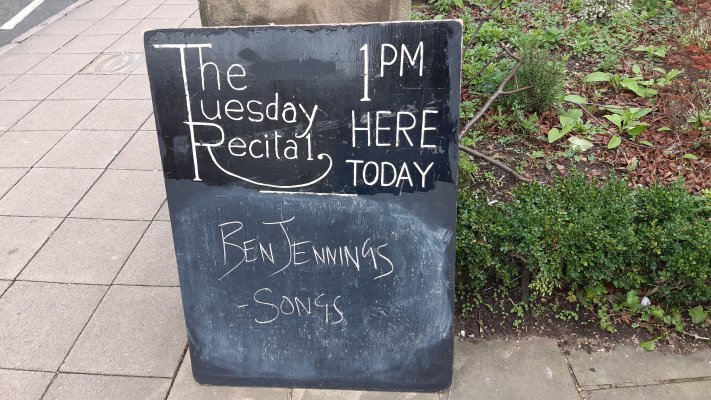 The
Tuesday
Recital
1PM
HERE
TODAY
BEN JENNINGS
- SONGS